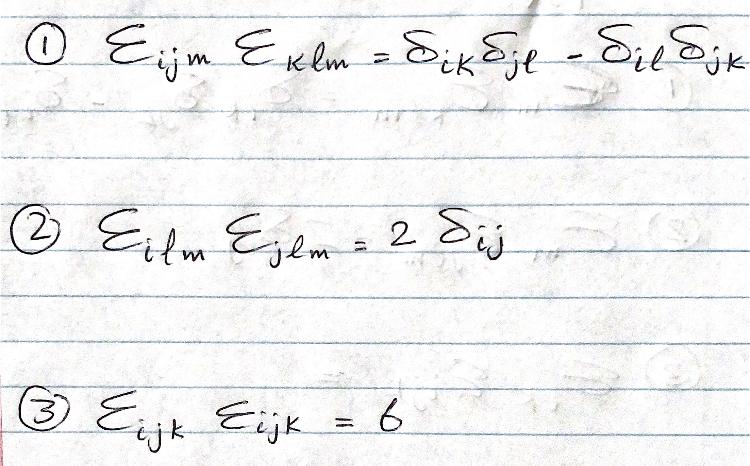 ① ε_{ijm} ε_{klm} = δ_{ik} δ_{jl} - δ_{il} δ_{jk}
② ε_{ilm} ε_{jlm} = 2 δ_{ij}
③ ε_{ijk} ε_{ijk} = 6